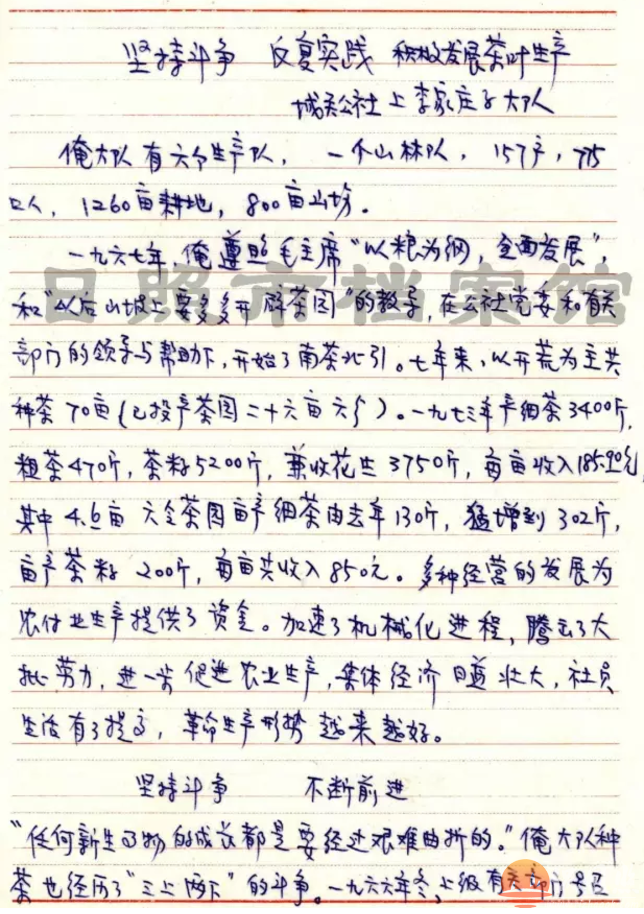 坚持斗争 反复实践 积极发展茶叶生产
城关公社上李家庄子大队
俺大队有六个生产队,一个山林队,157户,775
口人,1260亩耕地,800亩山场。
一九六七年,俺遵照毛主席“以粮为纲,全面发展”,
和“以后山坡上要多多开辟茶园”的教导,在公社党委和有关
部门的领导与帮助下,开始了南茶北引。七年来,以开荒为主共
种茶70亩(已投产茶园二十六亩六分)。一九七三年产细茶3400斤,
粗茶470斤,茶籽5200斤,兼收花生3750斤,每亩收入185.90元,
其中4.6亩 茶园亩产细茶由去年130斤,猛增到302斤,
亩产茶籽200斤,每亩共收入850元。多种经营的发展为
农付业生产提供了资金。加速了机械化进程,腾出了大
批劳力,进一步促进农业生产,集体经济日益壮大,社员
生活有了提高,革命生产形势越来越好。
坚持斗争 不断前进
“任何新生事物的成长都是要经过艰难曲折的。”俺大队种
茶也经历了“三上两下”的斗争。一九六六年冬,上级有关部门号召
日照市档案馆